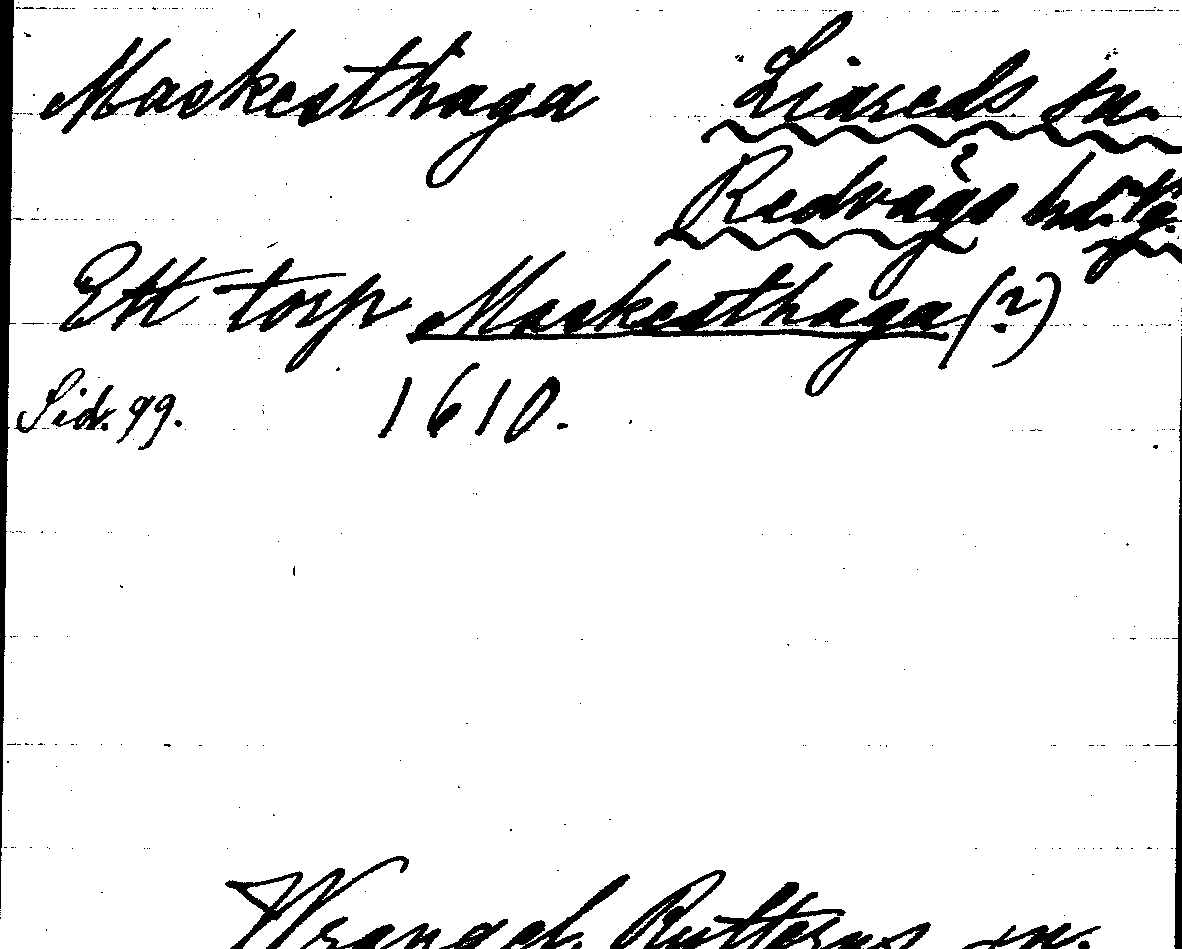 Maskesthaga Liareds sn.
Redvägs hd. Vg.
Ett torp Maskesthaga (?)
Sid. 99. 1610.
Wrangel, Rutterns sn.